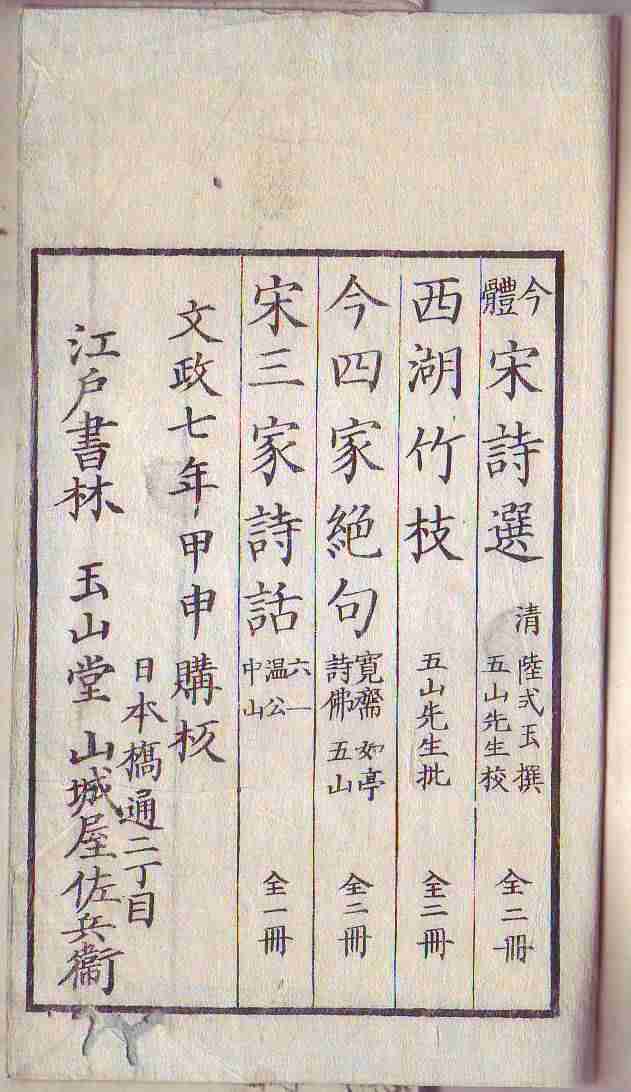 今體宋詩選 清陸弍玉撰 五山先生校 全二冊
西湖竹枝 五山先生批 全二冊
今四家絕句 寛齋 如亭 詩佛 五山 全二冊
宋三家詩話 六一 温公 中山 全一冊
文政七年甲申購板
日本橋通二丁目
江戶書林 玉山堂 山城屋佐兵衞